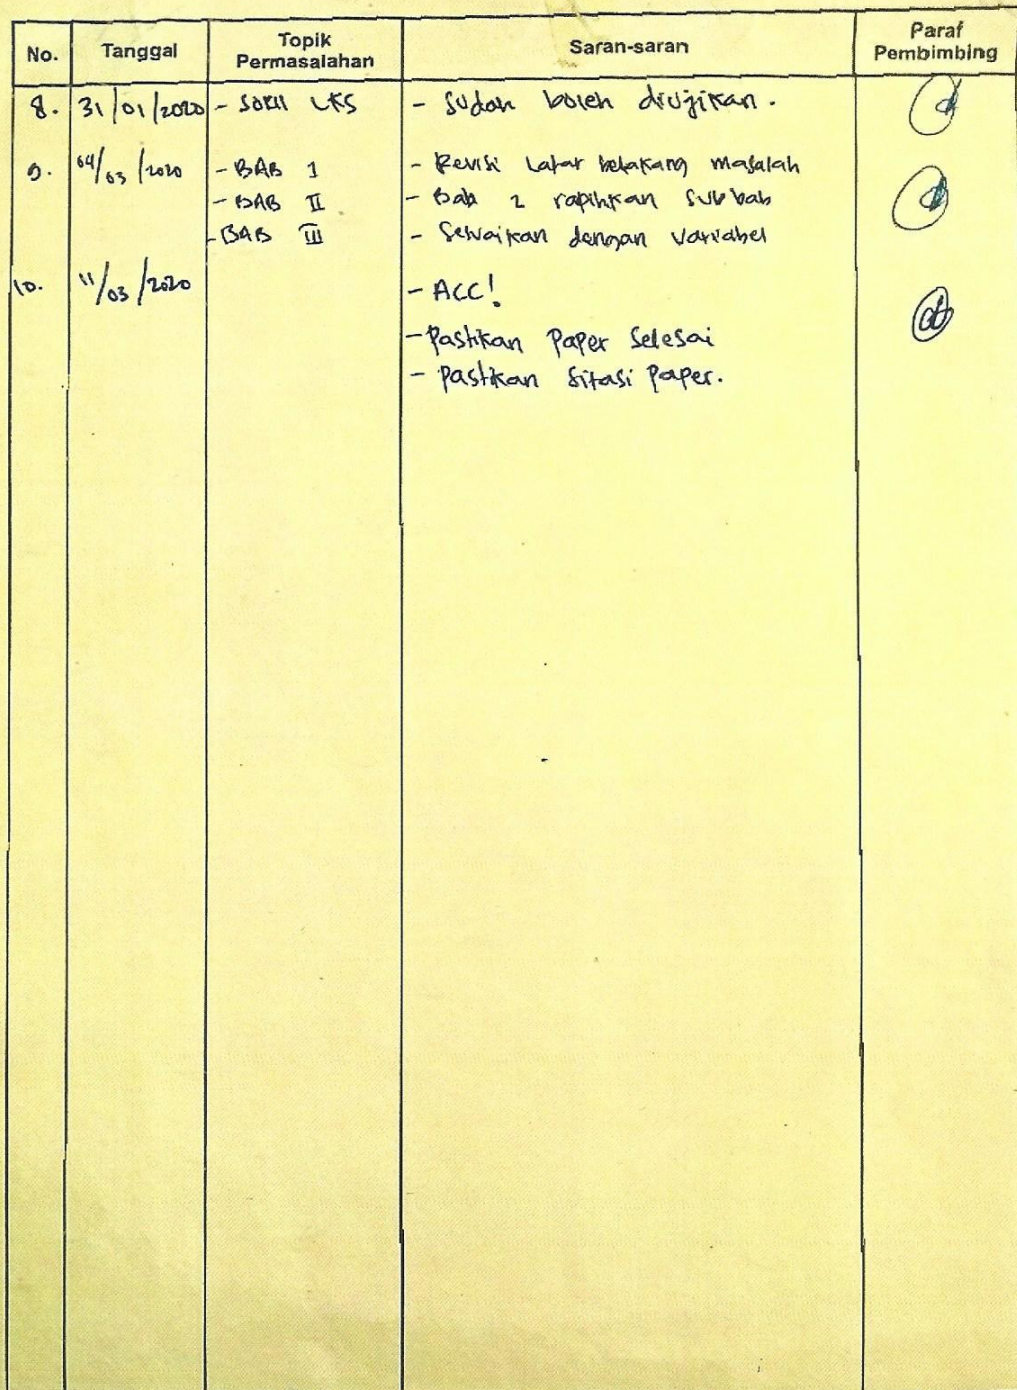 No. Tanggal Topik Permasalahan Saran-saran Paraf Pembimbing
8. 31/01/2020 - SOAL LKS - Sudah boleh diujikan.
9. 04/03/2020 - BAB 1 - Revisi Latar belakang masalah
- BAB II - Bab 2 rapihkan Sub bab
- BAB III - Sesuaikan dengan Variabel
10. 11/03/2020 - ACC!
- Pastikan Paper Selesai
- Pastikan Sitasi Paper.